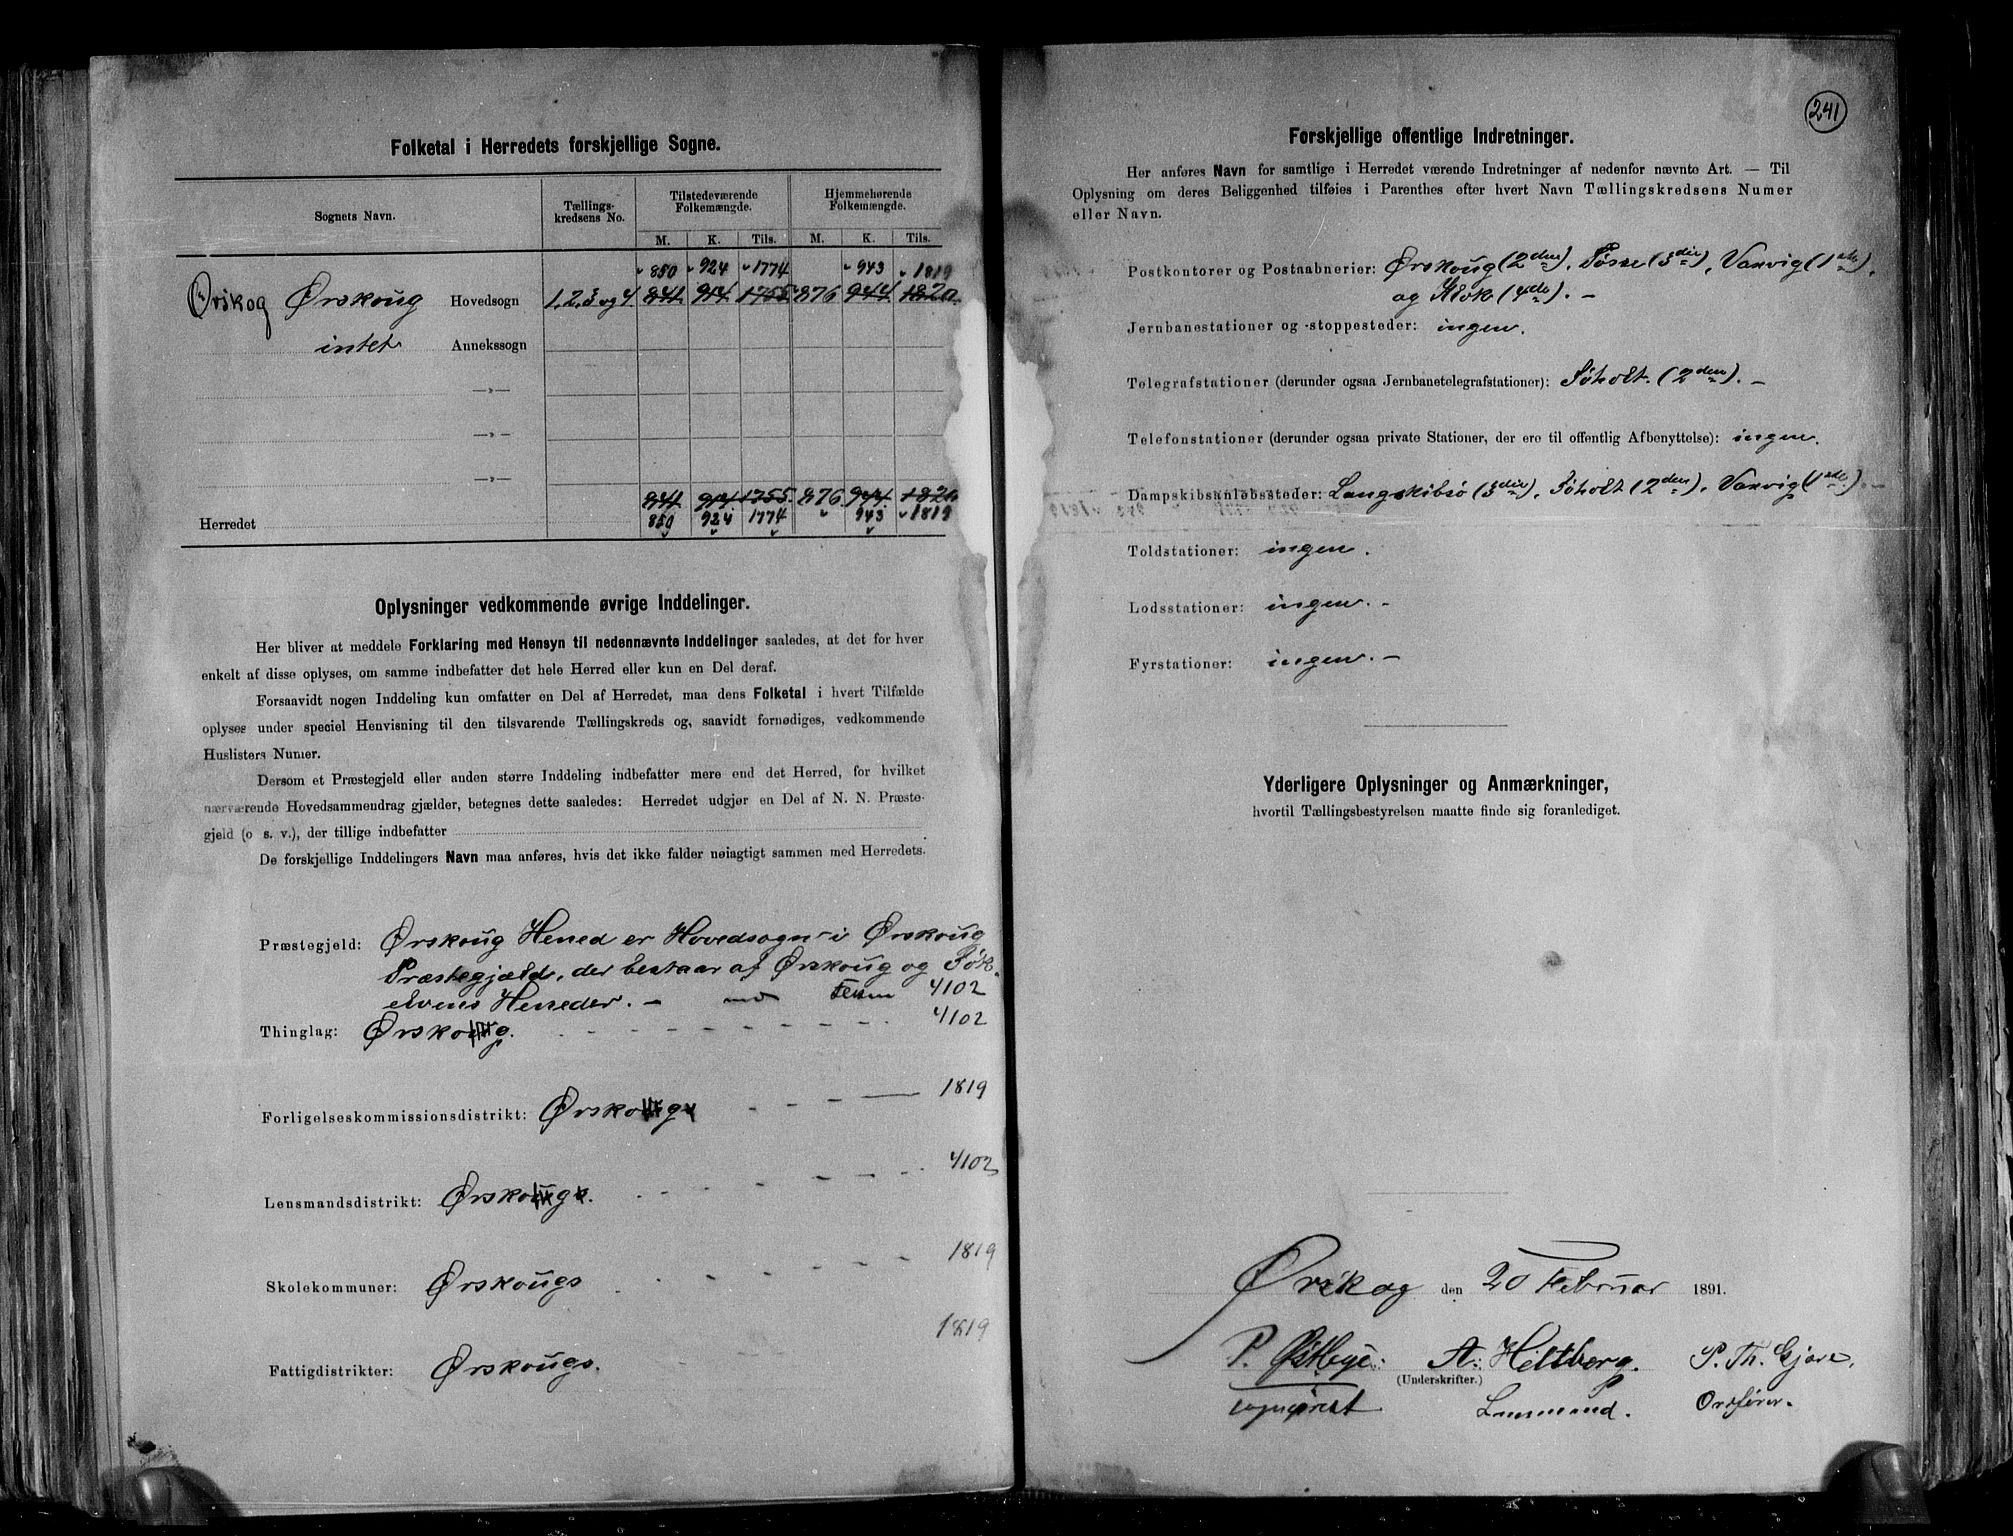 Folketal i Herredets forskjellige Sogne.
Sognets Navn. Tællings-kredsens No. Tilstedeværende Folkemængde. Hjemmehørende Folkemængde.
M. K. Tils. M. K. Tils.
850 924 1774 943 1819
Ørskog Ørskoug Hovedsogn 1, 2, 3 og 4 841 914 1755 876 944 1820
intet Annekssogn
—„—
—„—
—„—
841 914 1755 876 944 1820
Herredet 850 924 1774 943 1819
Oplysninger vedkommende øvrige Inddelinger.
Her bliver at meddele Forklaring med Hensyn til nedennævnte Inddelinger saaledes, at det for hver
enkelt af disse oplyses, om samme indbefatter det hele Herred eller kun en Del deraf.
Forsaavidt nogen Inddeling kun omfatter en Del af Herredet, maa dens Folketal i hvert Tilfælde
oplyses under speciel Henvisning til den tilsvarende Tællingskreds og, saavidt fornødiges, vedkommende
Huslisters Numer.
Dersom et Præstegjeld eller anden større Inddeling indbefatter mere end det Herred, for hvilket
nærværende Hovedsammendrag gjælder, betegnes dette saaledes: Herredet udgjør en Del af N. N. Præste-
gjeld (o s. v.), der tillige indbefatter
De forskjellige Inddelingers Navn maa anføres, hvis det ikke falder nøiagtigt sammen med Herredets.
Præstegjeld: Ørskoug Herred er Hovedsogn i Ørskoug
Præstegjæld, der bestaar af Ørskoug og Søk-
elvens Herreder. — 4102
Thinglag: Ørskoug. 4102
Forligelseskommissionsdistrikt: Ørskougs 1819
Lensmandsdistrikt: Ørskougs. 4102
Skolekommuner: Ørskougs 1819
Fattigdistrikter: Ørskougs. 1819
241
Forskjellige offentlige Indretninger.
Her anføres Navn for samtlige i Herredet værende Indretninger af nedenfor nævnte Art. — Til
Oplysning om deres Beliggenhed tilføies i Parenthes efter hvert Navn Tællingskredsens Numer
eller Navn.
Postkontorer og Postaabnerier: Ørskoug (2den), (3die), Vaxvig (1ste),
og (4de). —
Jernbanestationer og -stoppesteder: ingen.
Telegrafstationer (derunder ogsaa Jernbanetelegrafstationer): Søholt (2den). —
Telefonstationer (derunder ogsaa private Stationer, der ere til offentlig Afbenyttelse): ingen.
Dampskibsanløbssteder: Langskibsø (3die), Søholt (2den), Vaxvig (1ste). —
Toldstationer: ingen.
Lodsstationer: ingen. —
Fyrstationer: ingen. —
Yderligere Oplysninger og Anmærkninger,
hvortil Tællingsbestyrelsen maatte finde sig foranlediget.
Ørskog den 20 Februar 1891.
P. Østbye. A. Heltberg. P. Th. Gjære,
(Underskrifter.)
sognepræst Lensmand. Ordfører.